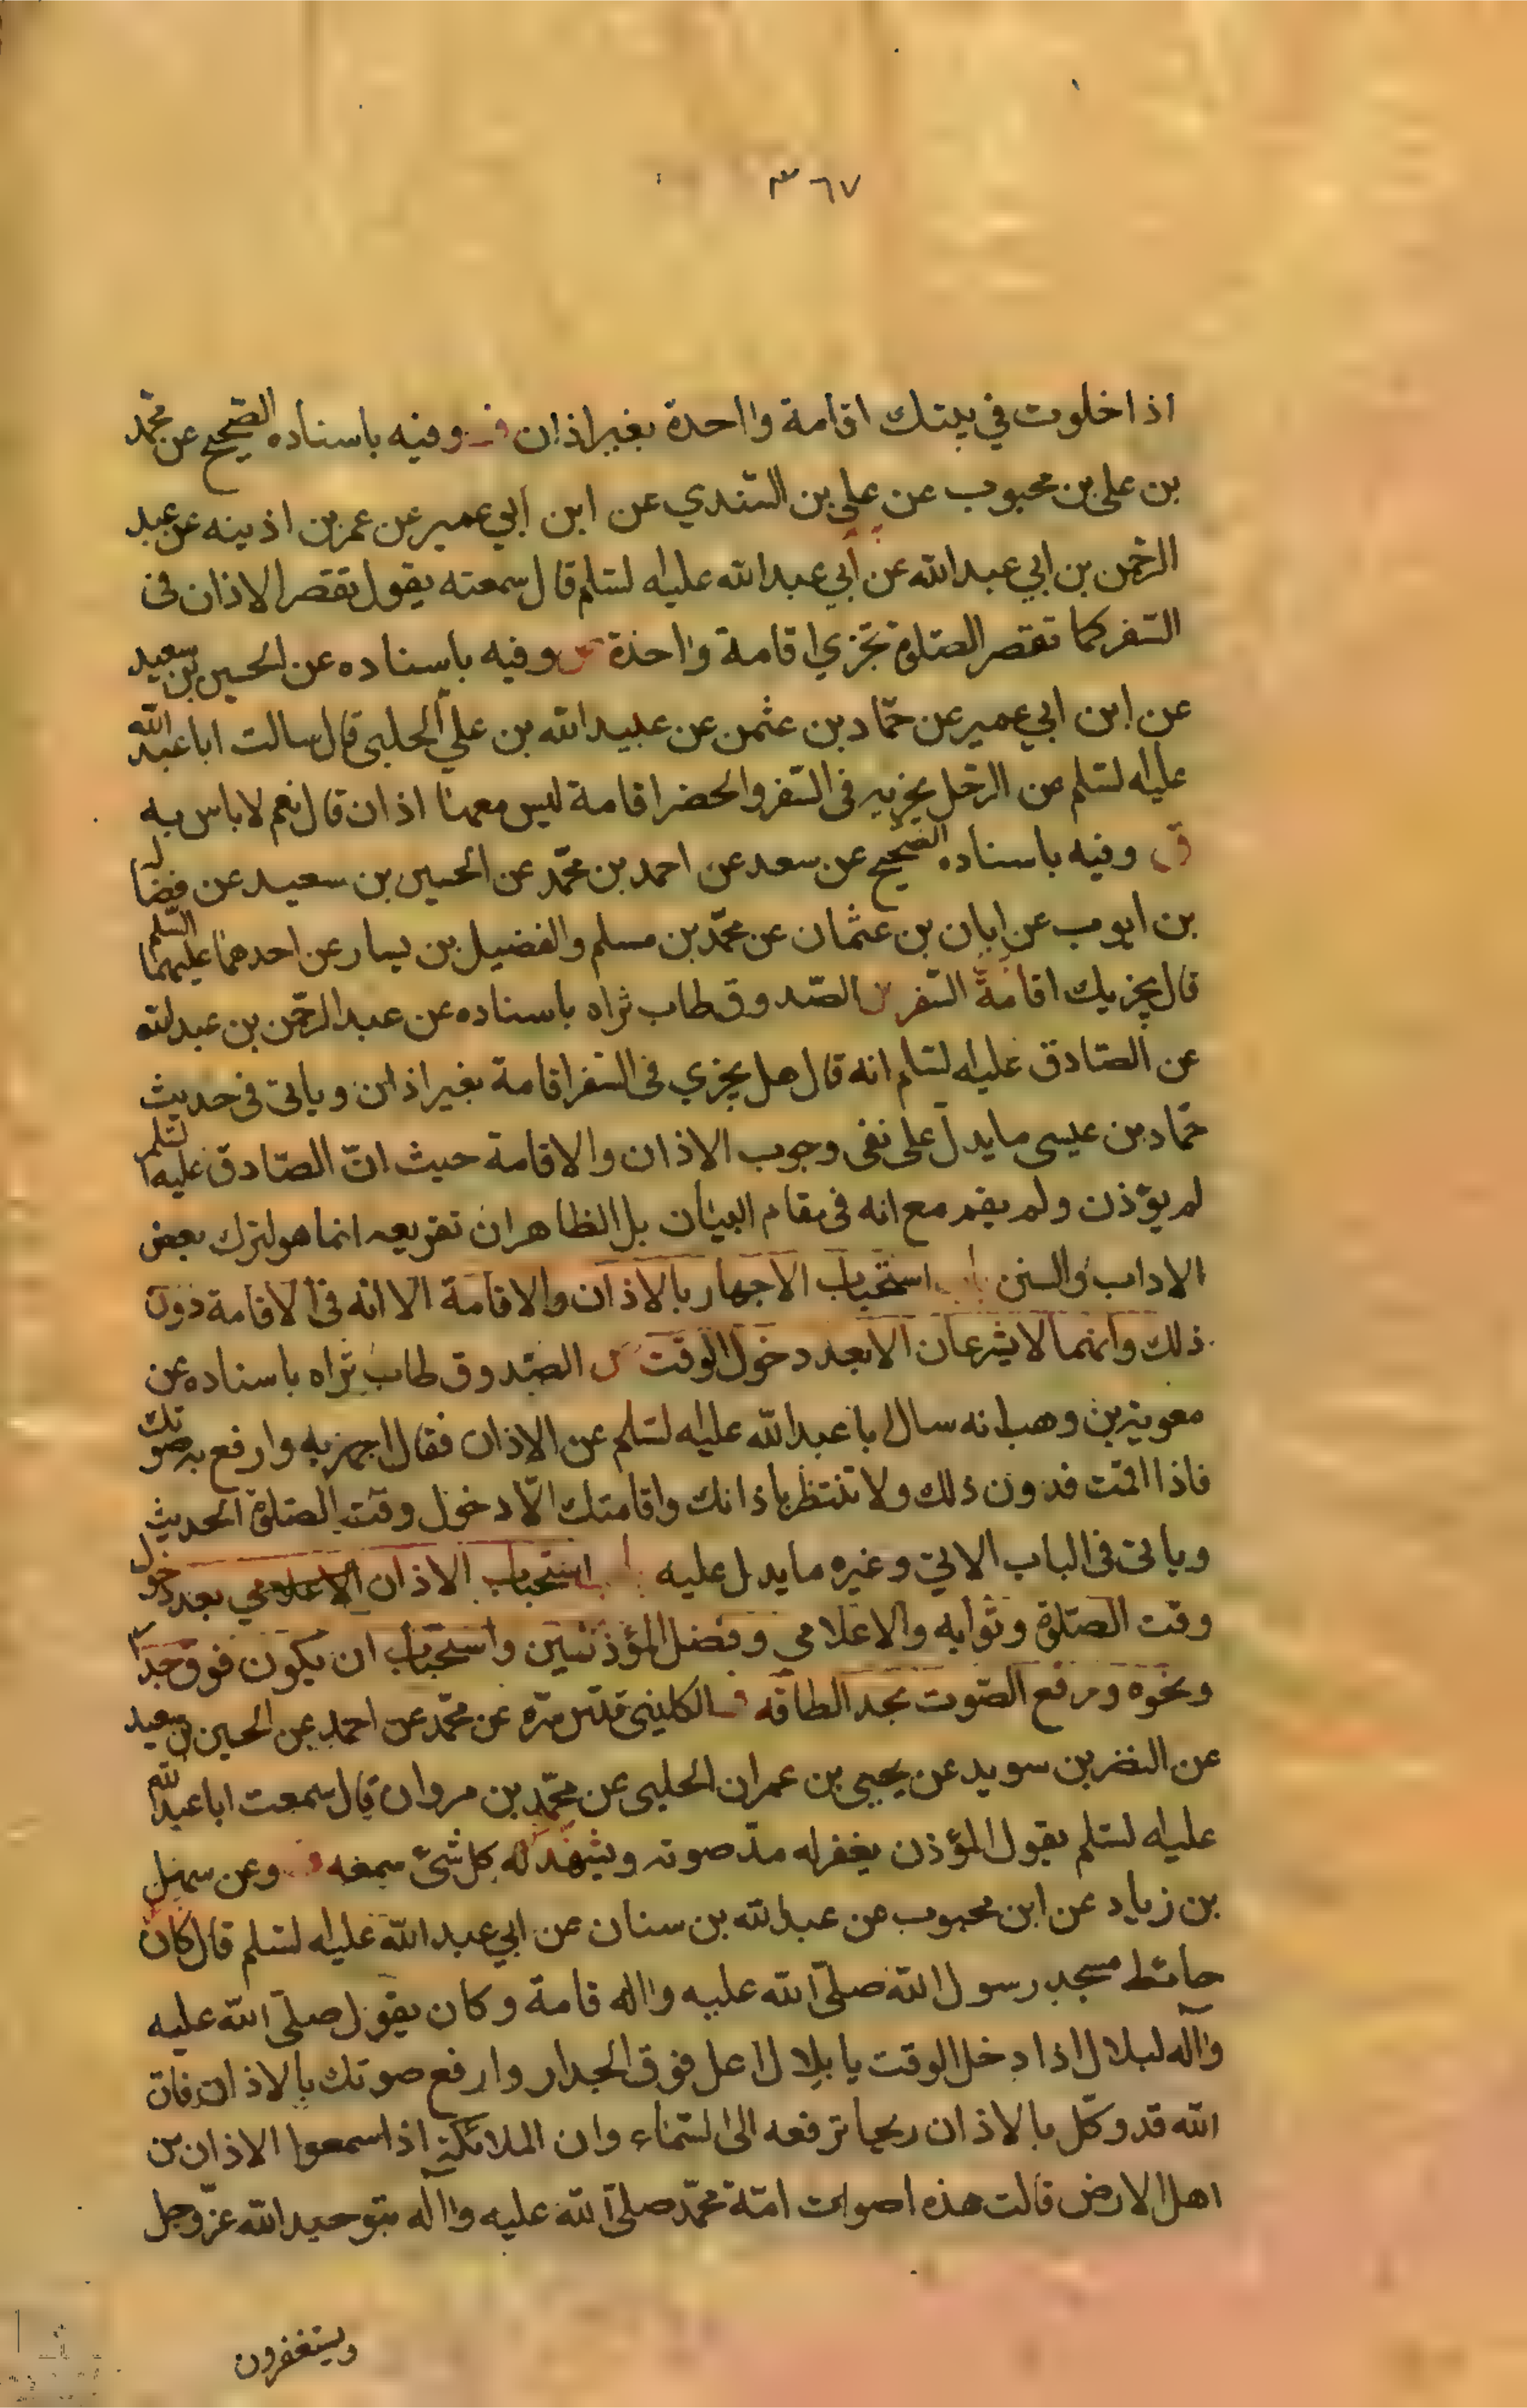 ٣٦٧
اذا خلوت في بيتك اقامة واحدة بغير اذان وفيه باسناده الصحيح عن محمد
بن علي بن محبوب عن علي بن السندي عن ابن ابي عمير عن عمر بن اذينه عن عبد
الرحمن بن ابي عبد الله عن أبي عبد الله عليه السلم قال سمعته يقول تقصر الاذان في
السفر كما تقصر الصلوة تجزي اقامة واحدة وفيه باسناده عن الحسين بن سعيد
عن ابن ابي عمير عن حماد بن عثمن عن عبيد الله بن علي الحلبي قال سالت ابا عبد الله
عليه السلم عن الرجل يجزيه في السفر والحضر اقامة ليس معها اذان قال نعم لا باس به
ق وفيه باسناده الصحيح عن سعد عن احمد بن محمد عن الحسين بن سعيد عن فضالة
بن ايوب عن ابان بن عثمان عن محمد بن مسلم والفضيل بن يسار عن احدهما عليهما السلم
قال يجزيك اقامة السفر الصدوق طاب ثراه باسناده عن عبد الرحمن بن عبد الله
عن الصادق عليه السلم انه قال هل يجزي في السفر اقامة بغير اذان وياتى فى حديث
حماد بن عيسى ما يدل على نفى وجوب الاذان والاقامة حيث ان الصادق عليه السلم
لم يؤذن ولم يقم مع انه فى مقام البيان بل الظاهر ان تقريعه انما هو لترك بعض
الاداب والسنن باب استحباب الاجهار بالاذان والاقامة الا انه فى الاقامة دون
ذلك وانهما لا يشرعان الا بعد دخول الوقت الصدوق طاب ثراه باسناده عن
معوية بن وهب انه سال ابا عبد الله عليه السلم عن الاذان فقال اجهر به وارفع به صوتك
فاذا اقمت فدون ذلك ولا تنتظر باذانك واقامتك الا دخول وقت الصلوة الحديث
وياتى فى الباب الاتي وغيره ما يدل عليه باب استحباب الاذان الاعلامي بعد دخول
وقت الصلوة وثوابه والاعلامي وفضل المؤذنين واستحباب ان يكون فوق جدار
ونحوه ورفع الصوت بحد الطاقه الكليني قدس سره عن محمد عن احمد عن الحسين بن سعيد
عن النضر بن سويد عن يحيى بن عمران الحلبي عن محمد بن مروان قال سمعت ابا عبد الله
عليه السلم يقول المؤذن يغفر له مد صوته ويشهد له كل شئ سمعه وعن سهل
بن زياد عن ابن محبوب عن عبد الله بن سنان عن ابي عبد الله عليه السلم قال كان
حائط مسجد رسول الله صلى الله عليه واله قامة وكان يقول صلى الله عليه
واله لبلال اذا دخل الوقت يا بلال اعل فوق الجدار وارفع صوتك بالاذان فان
الله قد وكل بالاذان ريحا ترفعه الى السماء وان الملائكة اذا سمعوا الاذان من
اهل الارض قالت هذه اصوات امة محمد صلى الله عليه واله بتوحيد الله عز وجل
ويستغفرون